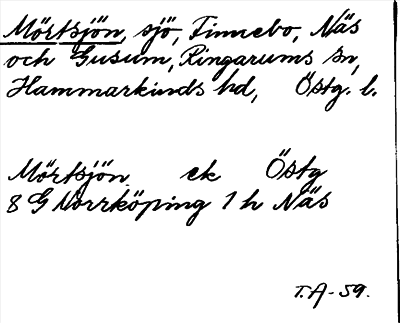 Mörtsjön, sjö, Finnebo, Näs
och Gusum, Ringarums sn,
Hammarkinds hd, Östg. l.
Mörtsjön ek Östg
8 G Norrköping 1 h Näs
T.A-59.